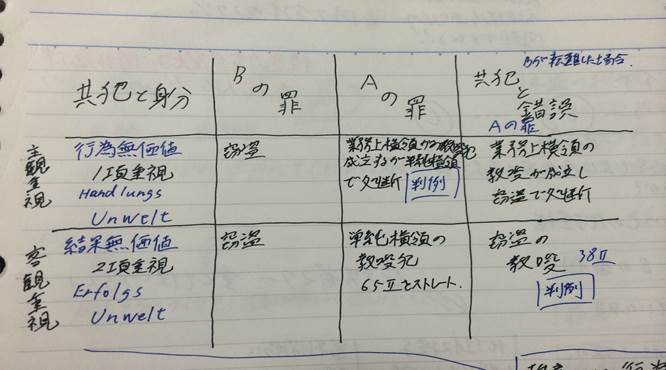 Bが転職した場合.
共犯と身分
Bの罪
Aの罪
共犯と錯誤
Aの罪
主観重視
行為無価値
1項重視
Handlungs
Unwelt
窃盗
業務上横領の教唆犯
成立するが単純横領
で処断
判例
業務上横領の
教唆が成立し
窃盗で処断
客観重視
結果無価値
2項重視
Erfolgs
Unwelt
窃盗
単純横領の
教唆犯
65Ⅱとストレート.
窃盗の
教唆 38Ⅱ
判例